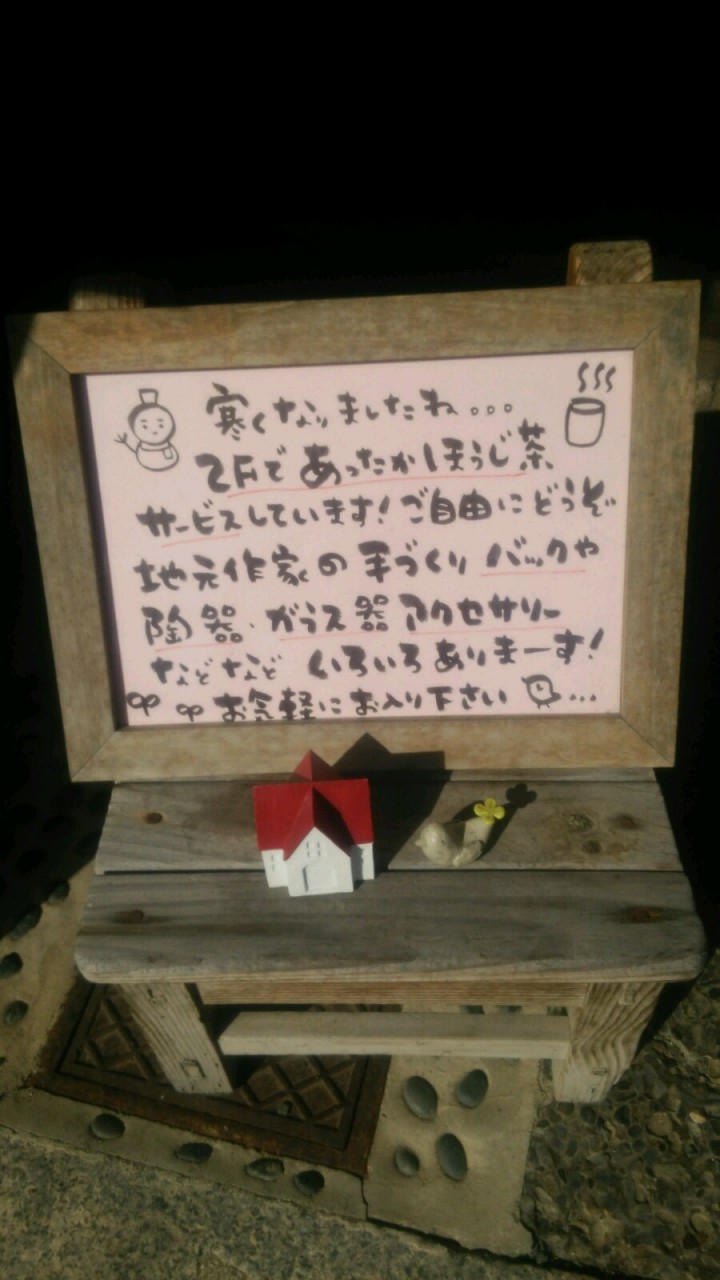 寒くなりましたね...
2Fであったかほうじ茶
サービスしています!ご自由にどうぞ
地元作家の手づくりバックや
陶器・ガラス器アクセサリー
などなど いろいろありまーす!
お気軽にお入り下さい ...